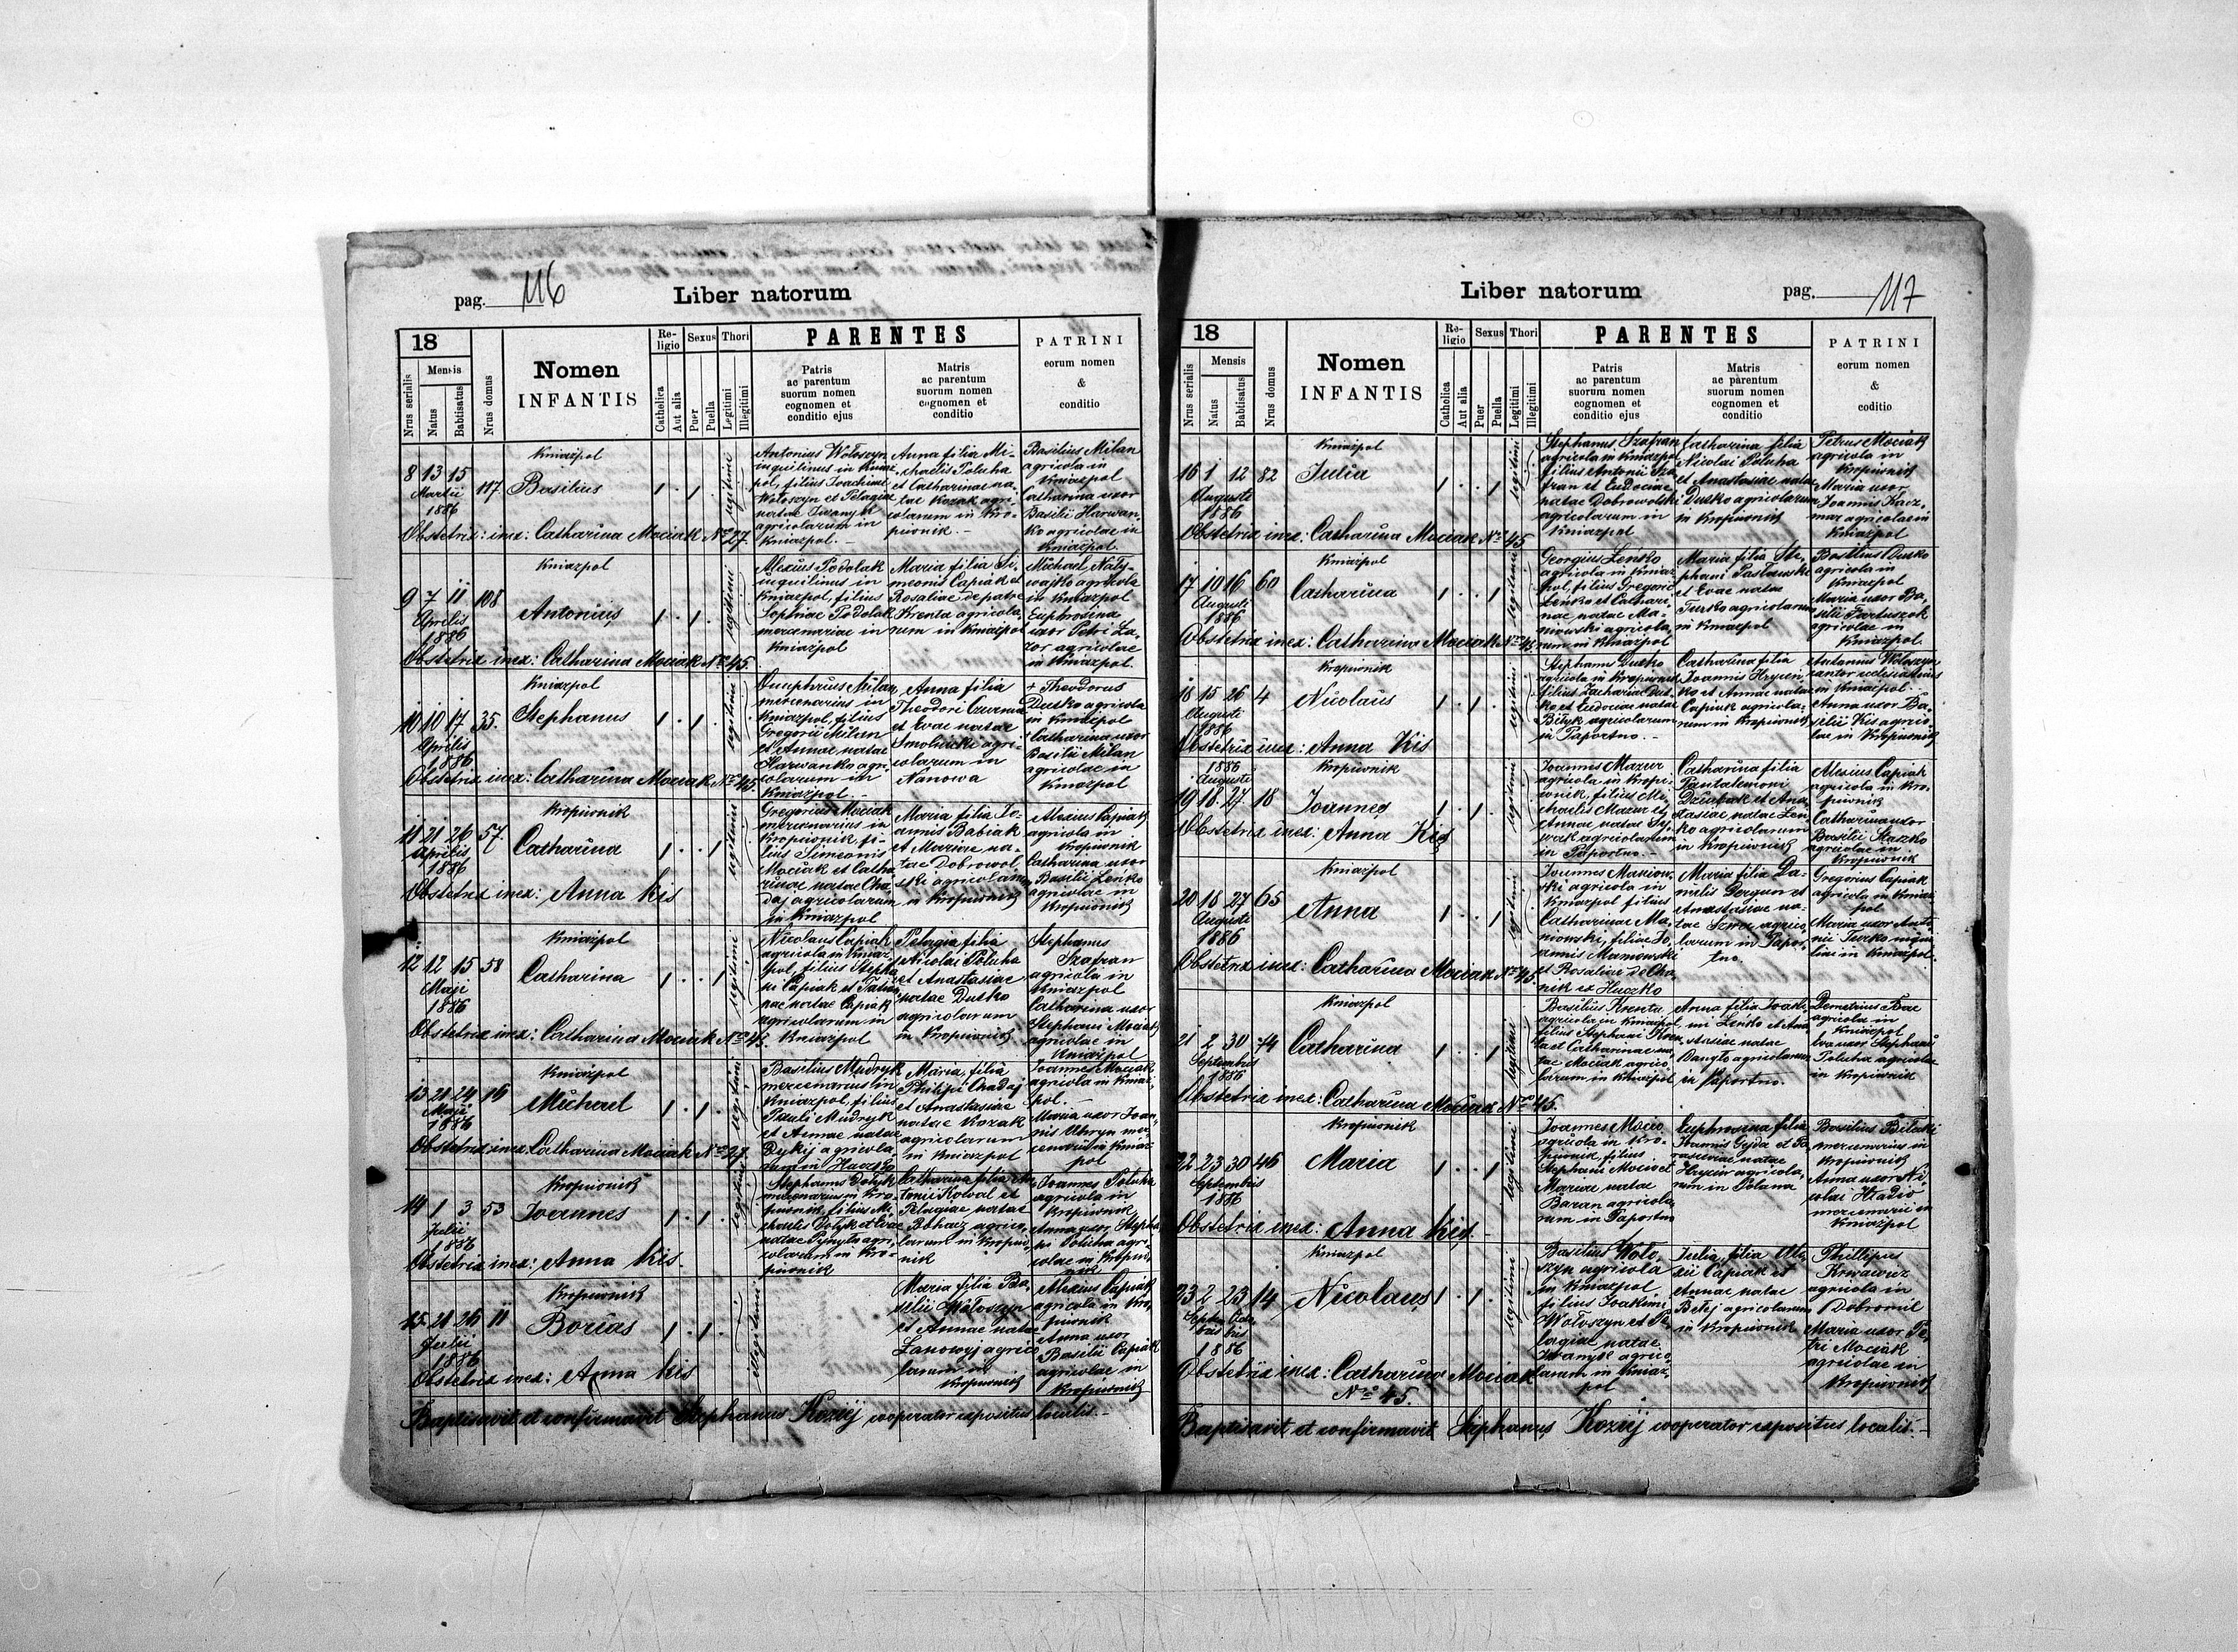 pag. 116
Liber natorum
18
Nrus serialis
Mensis
Natus
Babtisatus
Nrus domus
Nomen
INFANTIS
Religio
Catholica
Aut alia
Sexus
Puer
Puella
Thori
Legitimi
Illegitimi
PARENTES
Patris
ac parentum
suorum nomen
cognomen et
conditio ejus
Matris
ac parentum
suorum nomen
cognomen et
conditio
PATRINI
eorum nomen
&
conditio
Kniażpol
8 13 15 117 Basilius 1 . 1 . legitimi
Martii
1886
Antonius Wołoszyn
inquilinus in Kniaz-
pol, filius Joachimi
Wołoszyn et Pelagiae
natae Iwanyk
agricolarum in
Kniazpol. -
Anna filia Mi-
chaelis Polucha
et Catharinae na-
tae Kozak agri-
colarum in Kro-
piwnik. -
Basilius Milan
agricola in
Kniazpol
Catharina uxor
Basilii Harwan-
ko agricolae in
Kniazpol.
Obstetrix inex: Catharina Mociak Nro 27.
Kniażpol
9 7 11 108 Antonius 1 . 1 . legitimi
Aprilis
1886
Alexius Podolak
inquilinus in
Kniazpol, filius
Sophiae Podolak
mercenariae in
Kniazpol
Maria filia Si-
meonis Capiak et
Rosaliae de patre
Krenta agricola-
rum in Kniazpol
Michael Naty-
wajko agricola
in Kniazpol
Euphrosina
uxor Petri La-
zor agricolae
in Kniazpol.
Obstetrix inex: Catharina Mociak Nro 45.
Kniażpol
10 10 17 35. Stephanus 1 . 1 . legitimi
Aprilis
1886
Onuphrius Milan
mercenarius in
Kniazpol, filius
Gregorii Milan
et Annae natae
Harwanko agri-
colarum in
Kniazpol. -
Anna filia
Theodori
et Evae natae
Smolnicki agri-
colarum in
Nanowa
+ Theodorus
Dusko agricola
in Kniazpol
+ Catharina uxor
Basilii Milan
agricolae in
Kniazpol
Obstetrix inex: Catharina Mociak Nro 45.
Kropiwnik
11 21 26 57. Catharina 1 . . 1 legitimi
Aprilis
1886
Gregorius Mociak
mercenarius in
Kropiwnik fi-
lius Simeonis
Mociak et Catha-
rinae natae Cha-
daj agricolarum
in Kniazpol
Maria filia Jo-
annis Babiak
et Mariae na-
tae Dobrowol-
ski agricolarum
in Kropiwnik
Alexius Capiak
agricola in
Kropiwnik
Catharina uxor
Basilii Leńko
agricolae in
Kropiwnik
Obstetrix inex: Anna Kis
Kniażpol
12 12 15 58 Catharina 1 . . 1 legitimi
Maji
1886
Nicolaus Capiak
agricola in Kniaz-
pol, filius Stepha-
ni Capiak et Tatia-
nae natae Capiak
agricolarum in
Kniazpol
Pelagia filia
Nicolai Polucha
et Anastasiae
natae Dusko
agricolarum
in Kropiwnik
Stephanus
Szafran
agricola in
Kniazpol
Catharina uxor
Stephani Mociak
agricolae in
Kniazpol
Obstetrix inex: Catharina Mociak Nro 45.
Kniażpol
13 21 24 16 Michael 1 . 1 . legitimi
Maji
1886
Basilius Mudryk
mercenarius in
Kniazpol, filius
Pauli Mudryk
et Annae natae
Dykij agricola-
rum in Huczko
Maria, filia
Philipi Chadaj
et Anastasiae
natae Kozak
agricolarum
in Kniazpol
Joannes Mociak
agricola in Kniaz-
pol. -
Maria uxor Joan-
nis Uhryn mer-
cenarii in Kniaz-
pol
Obstetrix inex: Catharina Mociak Nro 27.
Kropiwnik
14 1 3 53 Joannes 1 . 1 . legitimi
Julii
1886
Stephanus Dołyk
mercenarius in Kro-
piwnik, filius Mi-
chaelis Dołyk et Evae
natae Pynyło agri-
colarum in Kro-
piwnik
Catharina filia An-
tonii Kowal et
Pelagiae natae
Rohacz agrico-
larum in Kropiw-
nik
Joannes Polucha
agricola in
Kropiwnik
Anna uxor Stepha-
ni Polucha agri-
colae in Kropiw-
nik
Obstetrix inex: Anna Kis.
Kropiwnik
15. 21 26 11 Boriss 1 . 1 . illegitimi
Julii
1886
Maria filia Ba-
silii Wołoszyn
et Annae natae
Lanowyj agrico-
larum in
Kropiwnik
Alexius Capiak
agricola in Kro-
piwnik
Anna uxor
Basilii Capiak
agricolae in
Kropiwnik
Obstetrix inex: Anna Kis
Baptisavit et confirmavit Stephanus Kozicij cooperator expositus localis. -
Liber natorum
pag. 117
18
Nrus serialis
Mensis
Natus
Babtisatus
Nrus domus
Nomen
INFANTIS
Religio
Catholica
Aut alia
Sexus
Puer
Puella
Thori
Legitimi
Illegitimi
PARENTES
Patris
ac parentum
suorum nomen
cognomen et
conditio ejus
Matris
ac parentum
suorum nomen
cognomen et
conditio
PATRINI
eorum nomen
&
coditio
Kniażpol
16 1 12 82 Julia 1 . . 1 legitimi
Augusti
1886
Stephanus Szafran
agricola in Kniazpol
filius Antonii Sza-
fran et Eudociae
natae Dobrowolski
agricolarum in
Kniazpol
Catharina filia
Nicolai Polucha
et Anastasiae natae
Dusko agricolarum
in Kropiwnik
Petrus Mociak
agricola in
Kropiwnik
Maria uxor
Joannis Kacz-
mar agricolae in
Kniazpol
Obstetrix inex: Catharina Mociak Nro 45
Kniażpol
17 10 16 60 Catharina 1 . . 1 legitimi
Augusti
1886
Georgius Leńko
agricola in Kniaz-
pol, filius Gregorii
Leńko et Cathari-
nae natae Ma-
niowski agricola-
rum in Kniazpol
Maria filia Ste-
phani Pasławski
et Evae natae
Turko agricolarum
in Kniazpol
Basilius Dusko
agricola in
Kniazpol
Maria uxor Ba-
silii Fartuszok
agricolae in
Kniazpol.
Obstetrix inex: Catharina Mociak Nro 45.
Kropiwnik
18 15 26 4 Nicolaus 1 . 1 . legitimi
Augusti
1886
Stephann Dusko
agricola in Kropiwnik
filius Zachariae Dus-
ko et Eudociae natae
Bilyk agricolarum
in Paportno. -
Catharina filia
Joannis Hrycen-
ko et Annae natae
Capiak agricola-
rum in Kropiwnik
Antonius Wołoszyn
cantor ecclesiasticus
in Kniazpol. -
Anna uxor Ba-
silii Kis agrico-
lae in Kropiwnik
Obstetrix inex: Anna Kis
1886
Augusti
Kropiwnik
19 18 27 18 Joannes 1 . 1 . legitimi
Joannes Mazur
agricola in Kropi-
wnik, filius Mi-
chaelis Mazur et
Annae natae
agricolarum
in Paportno. -
Catharina filia
Pantaleimoni
Dziubak et Ana-
stasiae natae Leń-
ko agricolarum
in Kropiwnik
Alexius Capiak
agricola in Kro-
piwnik
Catharina uxor
Basilii Staszko
agricolae in
Kropiwnik
Obstetrix inex: Anna Kis
Kniażpol
20 18 27 65 Anna 1 . . 1 legitimi
Augusti
1886
Joannes Maniow-
ski agricola in
Kniazpol filius
Catharinae Ma-
niowski, filiae Jo-
annis Maniowski
et Rosaliae de Cha-
nik ex Huczko
Maria filia Da-
nielis Dergun et
Anastasiae na-
tae agrico-
larum in Papor-
tno.
Gregorius Capiak
agricola in Kniaz-
pol
Maria uxor Anto-
nii Turko inqui-
lini in Kniazpol.
Obstetrix inex: Catharina Mociak Nro 45.
Kniażpol
21 2 30 74 Catharina 1 . . 1 legitimi
Septembris
1886
Basilius Krenta
agricola in Kniazpol,
filius Stephani Kren-
ta et Catharinae na-
tae Mociak agrico-
larum in Kniazpol
Anna filia Joaki-
mi Leńko et Ana-
stasiae natae
Danyło agricolarum
in Paportno.
Demetrius Bac
agricola in
Kniazpol
Eva uxor Stephani
Polucha agricolae
in Kropiwnik
Obstetrix inex: Catharina Mociak Nro 45.
Kropiwnik
22 23 30 46 Maria 1 . . 1 legitimi
Septembris
1886
Joannes Mocio
agricola in Kro-
piwnik, filius
Stephani Mocio et
Mariae natae
Baran agricola-
rum in Paportno
Euphrosina filia
Joannis Gyda et Pa-
rasceviae natae
Hryciw agricola-
rum in Polana
Basilius Bilecki
mercenarius in
Kropiwnik
Anna uxor Ni-
colai Hradio
mercenarii in
Kniazpol
Obstetrix inex: Anna Kis.
Kniażpol
23 2 23 14 Nicolaus 1 . 1 . legitimi
Septem Octo
bris bris
1886
Basilius Woło-
szyn agricola
in Kniazpol
filius Joakimi
Wołoszyn et Pe-
lagiae natae
Iwanyk agrico-
larum in Kniaz-
pol
Julia, filia Ale-
xii Capiak et
Annae natae
Betej agricolarum
in Kropiwnik
Phillipus
Krwawicz
agricola in
Dobromil
Maria uxor Pe-
tri Mociak
agricolae in
Kropiwnik
Obstetrix inex: Catharina Mociak
Nro 45.
Baptisavit et confirmavit Stephanus Kozicij cooperator expositus localis. -